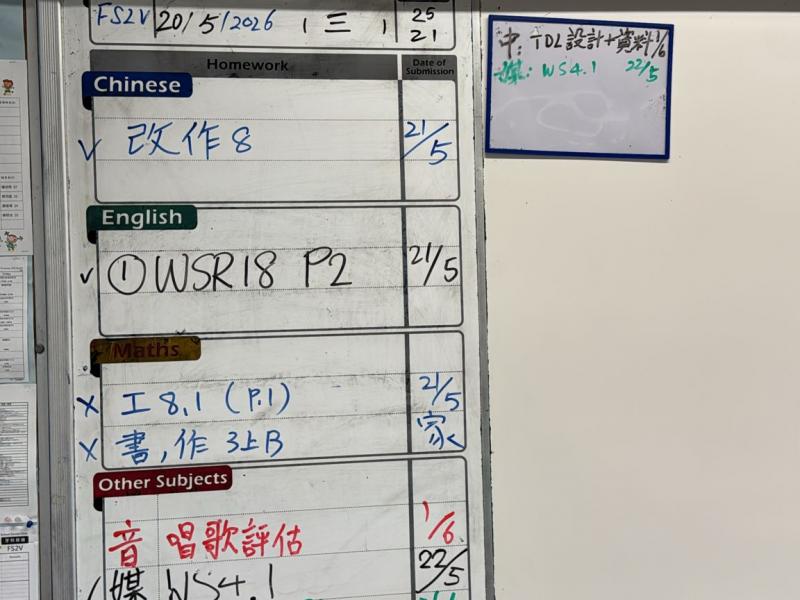 FS2V 20/5/2026 ( 三 ) 25
21
Homework Date of Submission
Chinese
✓ 改作8 21/5
English
✓ ①WSR18 P2 21/5
Maths
X 工8.1 (P.1) 21/5
X 書,作3上B 家
Other Subjects
音 唱歌評估 1/6
媒 WS4.1 22/5
中: TDL設計+資料 1/6
媒: WS4.1 22/5
FS2V